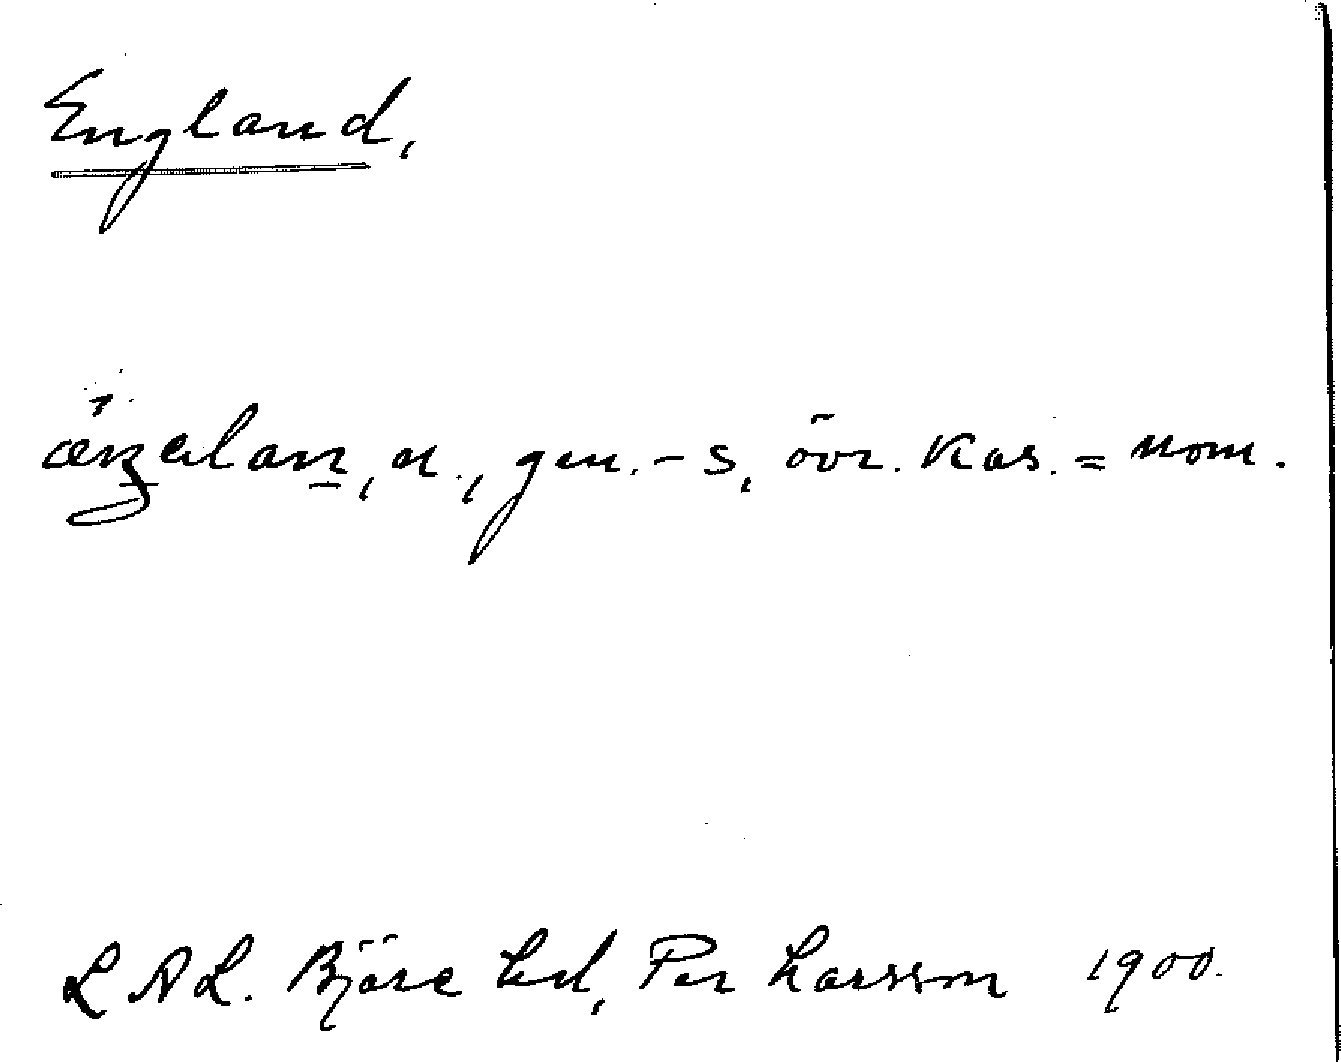 England,
ænȝelan, n., gen. -s, övr. kas. = nom.
L A L. Per Larsson 1900.